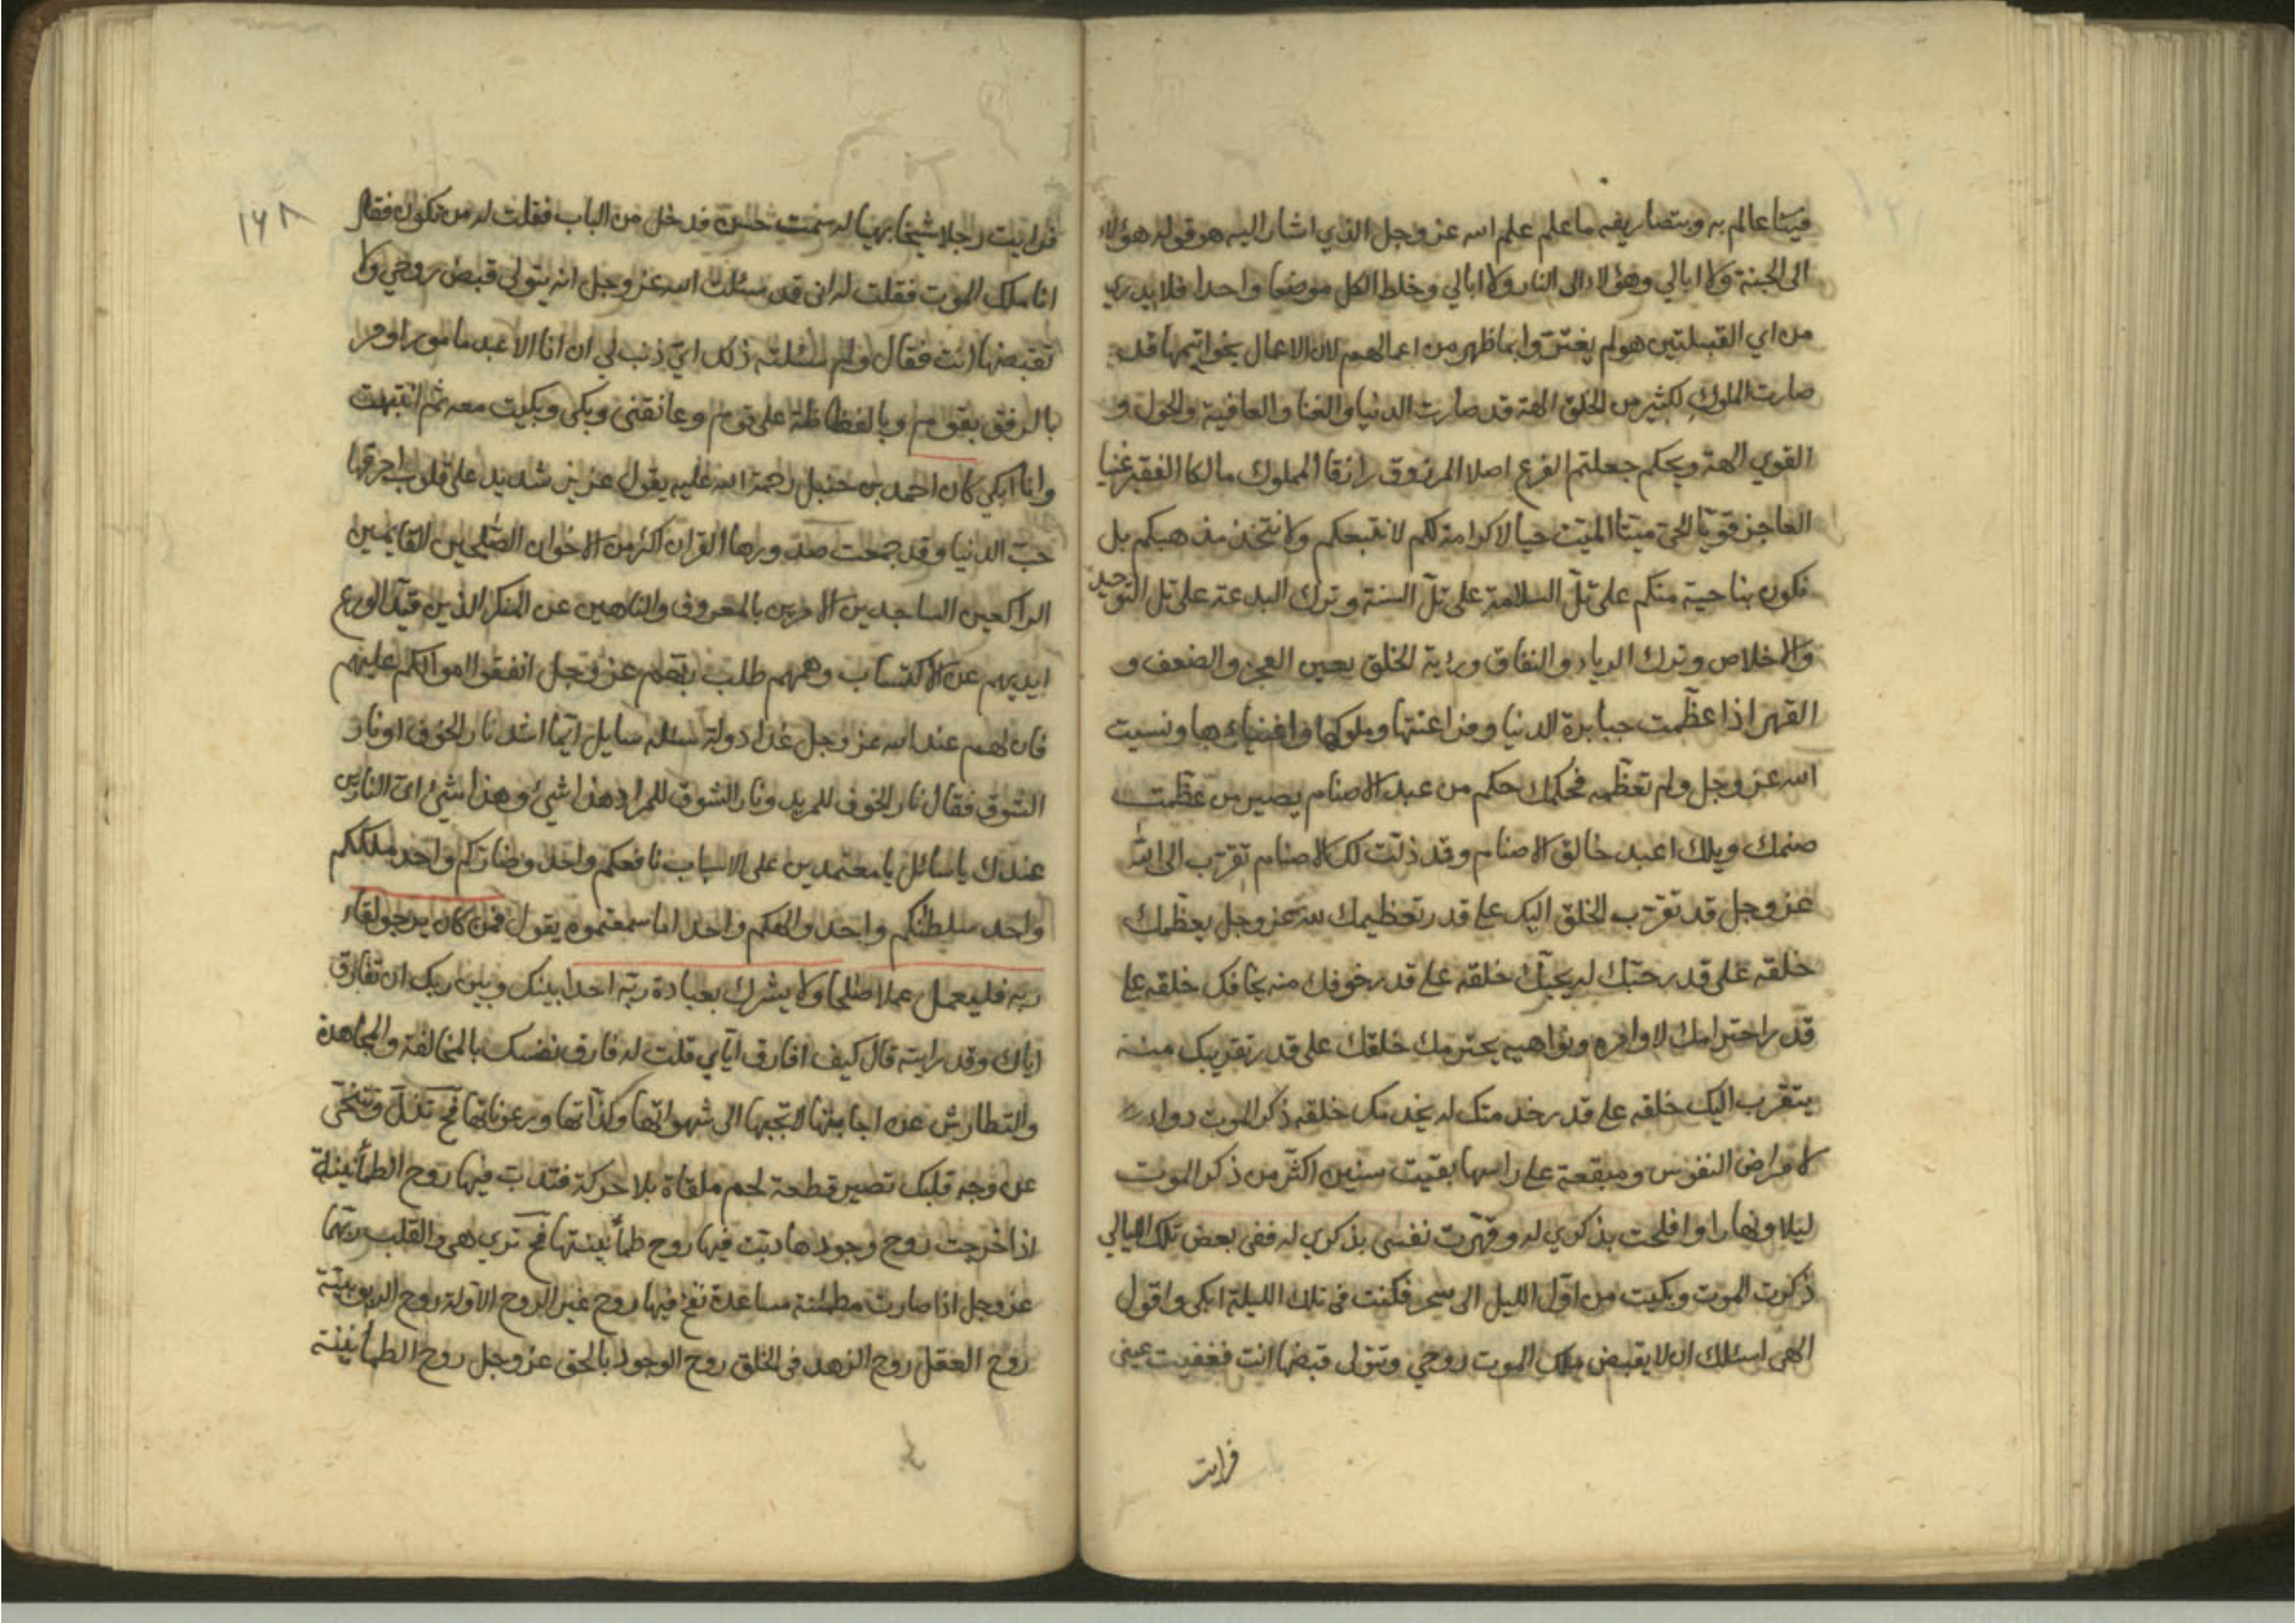 فينا عالم به وبتصاريفه ما علم علم الله عز وجل الذي اشار اليه هو قوله هؤلاء
الى الجنة ولا ابالي وهؤلاء الى النار ولا ابالي وخلط الكل موضعا واحدا فلا يدري
من اي القبيلتين هو لم يغتروا بما ظهر من اعمالهم لان الاعمال بخواتيمها قد
صارت الملوك لكثير من الخلق الهة قد صارت الدنيا والغنا والعافية والحول و
القوي الهة ويحكم جعلتم الفرع اصلا المرزوق رازقا المملوك مالكا الفقير غنيا
العاجز قويا الحي ميتا الميت حيا لا كرامة لكم لا نتبعكم ولا نتخذ مذهبكم بل
نكون بناحية منكم على تل السلامة على تل السنة وترك البدعة على تل التوحيد
والاخلاص وترك الرياء والنفاق ورؤية الخلق بعين العجز والضعف و
القهر اذا عظمت جبابرة الدنيا وفراعنتها وملوكها واغنياءها ونسيت
الله عز وجل ولم تعظمه فحكمك حكم من عبد الاصنام يصير من عظمت
صنمك ويلك اعبد خالق الاصنام وقد ذلت لك الاصنام تقرب الى الله
عز وجل قد تقرب الخلق اليك على قدر تعظيمك لله عز وجل يعظمك
خلقه على قدر حبك له يحبك خلقه على قدر خوفك منه يخافك خلقه على
قدر احترامك لاوامره ونواهيه يحترمك خلقك على قدر تقربك منه
يتقرب اليك خلقه على قدر خدمتك له يخدمك خلقه ذكر الموت دواء
لامراض النفوس ومقمعة على راسها بقيت سنين اكثر من ذكر الموت
ليلا ونهارا وافلحت بذكري له وقهرت نفسي بذكري له ففي بعض تلك الليالي
ذكرت الموت وبكيت من اول الليل الى سحر فكنت في تلك الليلة ابكي واقول
الهي اسئلك ان لا يقبض ملك الموت روحي وتتولى قبضها انت فغفيت عيني
فرايت
١٦٨
فرايت رجلا شيخا بهيا له سمت حسن قد خل من الباب فقلت له من تكون فقال
انا ملك الموت فقلت له اني قد سئلت الله عز وجل انه يتولى قبض روحي ولا
تقبضها انت فقال ولم سئلته ذلك اي ذنب لي ان انا الا عبد مامور اومر
بالرفق بقوم وبالفظاظة على قوم وعانقني وبكى وبكيت معه ثم انتبهت
وانا ابكي كان احمد بن حنبل رحمة الله عليه يقول عزيز شديد على قلوب احرقها
حب الدنيا وقد جمعت صدورها القران اكثر من الاخوان الصلحين القايمين
الراكعين الساجدين الامرين بالمعروف والناهين عن المنكر الذين قيد الورع
ايديهم عن الاكتساب وهمهم طلب ربهم عز وجل انفقوا اموالكم عليهم
فان لهم عند الله عز وجل غدا دولة سئله سايل ايما اشد نار الخوف او نار
الشوق فقال نار الخوف للمريد ونار الشوق للمراد هذا شيء وهذا شيء اي النارين
عندك يا سائل يا معتمدين على الاسباب نافعكم واحد وضاركم واحد ملككم
واحد سلطنكم واحد والهكم واحد اما سمعتموه يقول فمن كان يرجو لقاء
ربه فليعمل عملا صلحا ولا يشرك بعبادة ربه احدا بينك وبين ربك ان تفارق
اياك وقد رايته قال كيف افارق اياي قلت له فارق نفسك بالمخالفة والمجاهدة
والتطارش عن اجابتها لا تجبها الى شهواتها ولذاتها ورعوناتها فح تذل وتتنحى
عن وجه قلبك تصير قطعة لحم ملقاة بلا حركة فتدب فيها روح الطمأنينة
اذا خرجت روح وجودها دبت فيها روح طمأنينتها فح تري هي والقلب ربهما
عز وجل اذا صارت مطمئنة مساعدة نفخ فيها روح غير الروح الاولة روح الربوبية
روح العقل روح الزهد في الخلق روح الوجود بالحق عز وجل روح الطمأنينة